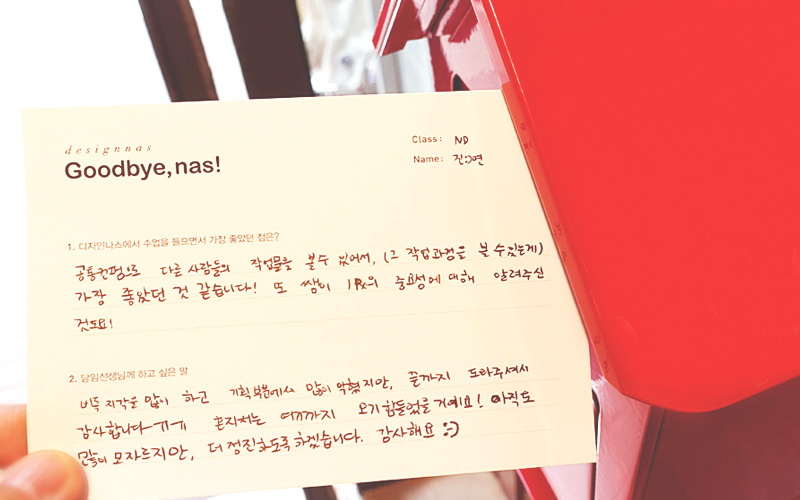 designnas
Goodbye, nas!
Class: ND
Name: 진:)연
1. 디자인나스에서 수업을 들으면서 가장 좋았던 점은?
다른 사람들의 작업물을 볼 수 있어서, (그 작업과정을 볼 수 있는게)
가장 좋았던 것 같습니다! 또 쌤이 1px의 중요성에 대해 알려주신
것도요!
2. 담임선생님께 하고 싶은 말
비록 지각을 많이 하고 기획부분에서 많이 막혔지만, 끝까지 도와주셔서
감사합니다-ㅠㅠ 혼자서는 여기까지 오기 힘들었을거예요! 아직도
많이 모자르지만, 더 정진하도록 하겠습니다. 감사해요 :)